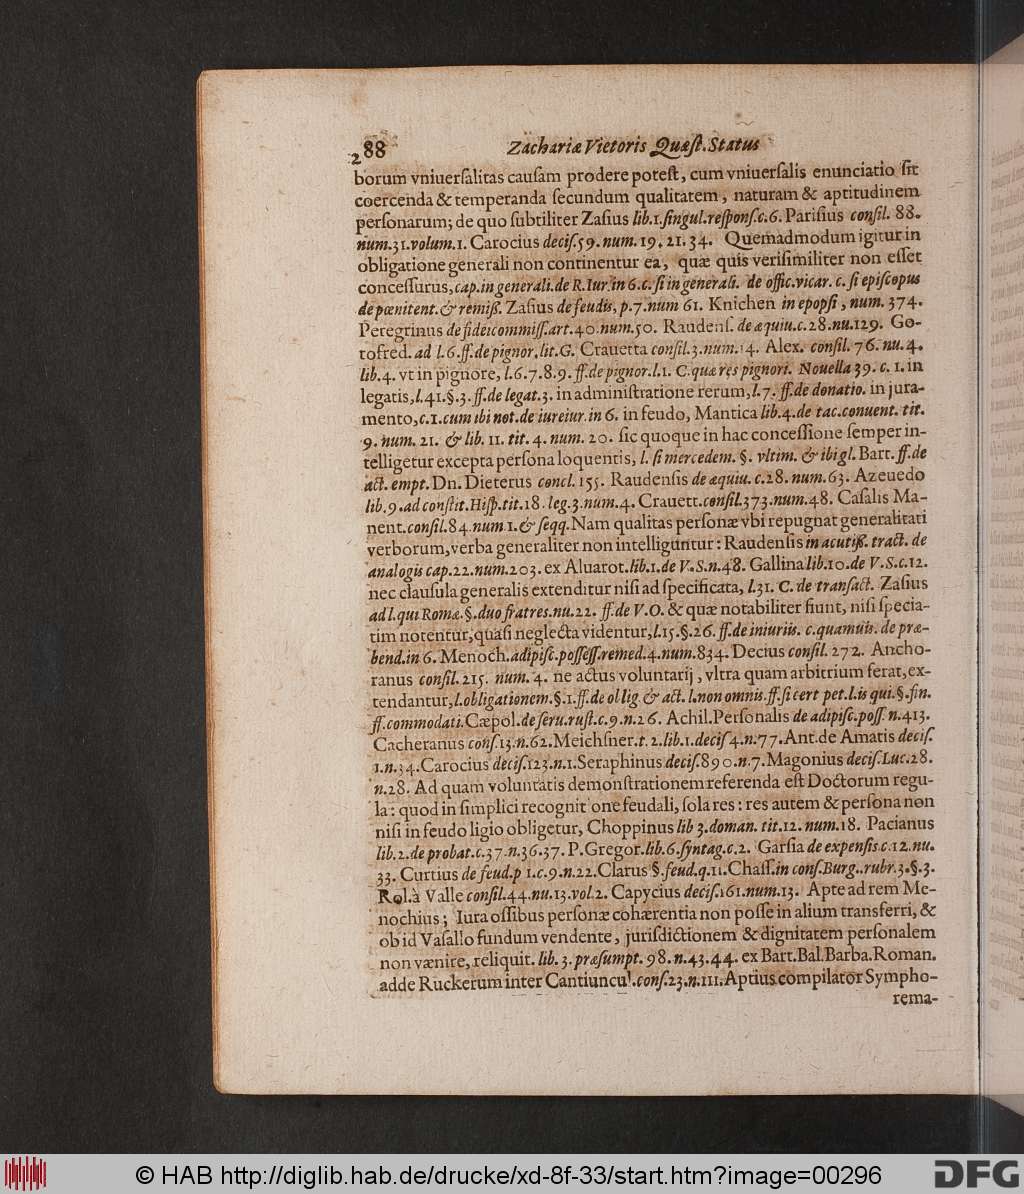 288 Zachariæ Vietoris Quæst. Status
borum vniuersalitas causam prodere potest, cum vniuersalis enunciatio sit
coercenda & temperanda secundum qualitatem, naturam & aptitudinem
personarum; de quo subtiliter Zasius lib.1.singul.respons.c.6. Parisius consil. 88.
num.31.volum.1. Carocius decis.59. num. 19. 21. 34. Quemadmodum igitur in
obligatione generali non continentur ea, quæ quis verisimiliter non esset
concessurus, cap.in generali.de R.Iur.in 6.c. si in generali. de offic.vicar. c. si episcopus
de pœnitent. & remiß. Zasius de feudis, p.7.num 61. Knichen in epopsi, num. 374.
Peregrinus de fideicommiss.art.40.num.50. Raudens. de æquiu.c.28.nu.129. Go-
tofred. ad l.6.ff.de pignor.lit.G. Crauetta consil.3.num.14. Alex. consil. 76. nu. 4.
lib. 4. vt in pignore, l.6.7.8.9. ff.de pignor.l.1. C.quæ res pignori. Nouella 39. c. 1. in
legatis, l.41.§.3. ff.de legat.3. in administratione rerum, l.7. ff.de donatio. in jura-
mento, c.1.cum ibi not.de iureiur.in 6. in feudo, Mantica lib.4.de tac.conuent. tit.
9. num. 21. & lib. 11. tit. 4. num. 20. sic quoque in hac concessione semper in-
telligetur excepta persona loquentis, l. si mercedem. §. vltim. & ibi gl. Bart. ff.de
act. empt. Dn. Dieterus concl. 155. Raudensis de æquiu. c.28. num. 63. Azeuedo
lib.9.ad constit.Hisp.tit.18.leg.3.num.4. Crauett.consil.373.num.48. Casalis Ma-
nent.consil.84.num.1.& seqq. Nam qualitas personæ vbi repugnat generalitati
verborum, verba generaliter non intelliguntur: Raudensis in acutiß. tract. de
analogis cap.22.num.203. ex Aluarot.lib.1.de V.S.n.48. Gallina lib.10.de V.S.c.12.
nec clausula generalis extenditur nisi ad specificata, l.31. C. de transact. Zasius
ad l.qui Romæ.§.duo fratres.nu.22. ff.de V.O. & quæ notabiliter fiunt, nisi specia-
tim notentur, quasi neglecta videntur, l.15.§.26. ff.de iniuriis. c.quamuis. de præ-
bend.in 6. Menoch.adipisc.possess.remed.4.num.834. Decius consil. 272. Ancho-
ranus consil. 215. num. 4. ne actus voluntarij, vltra quam arbitrium ferat, ex-
tendantur, l.obligationem.§.1.ff.de ollig. & act. l.non omnis.ff.si cert pet.l.is qui.§.fin.
ff.commodati. Cæpol.de seru.rust.c.9.n.26. Achil.Personalis de adipisc.poss.n.413.
Cacheranus cons.13.n.62. Meichsner.t.2.lib.1.decis 4.n.77. Ant.de Amatis decis.
1.n.34. Carocius decis.123.n.1. Seraphinus decis.890.n.7. Magonius decis.Luc.28.
n.28. Ad quam voluntatis demonstrationem referenda est Doctorum regu-
la: quod in simplici recognit one feudali, sola res: res autem & persona non
nisi in feudo ligio obligetur, Choppinus lib 3.doman. tit.12. num.18. Pacianus
lib.2.de probat.c.37.n.36.37. P.Gregor.lib.6.syntag.c.2. Garsia de expensis.c.12.nu.
33. Curtius de feud.p 1.c.9.n.22. Clarus §.feud.q.11. Chass.in cons.Burg..rubr.3.§.3.
Rol.à Valle consil.44.nu.13.vol.2. Capycius decis.161.num.13. Apte ad rem Me-
nochius; Iura ossibus personæ cohærentia non posse in alium transferri, &
ob id Vasallo fundum vendente, jurisdictionem & dignitatem personalem
non vænire, reliquit. lib. 3. præsumpt. 98. n.43.44. ex Bart.Bal.Barba.Roman.
adde Ruckerum inter Cantiuncul.cons.23.n.111. Aptius compilator Sympho-
rema-
© HAB http://diglib.hab.de/drucke/xd-8f-33/start.htm?image=00296
DFG